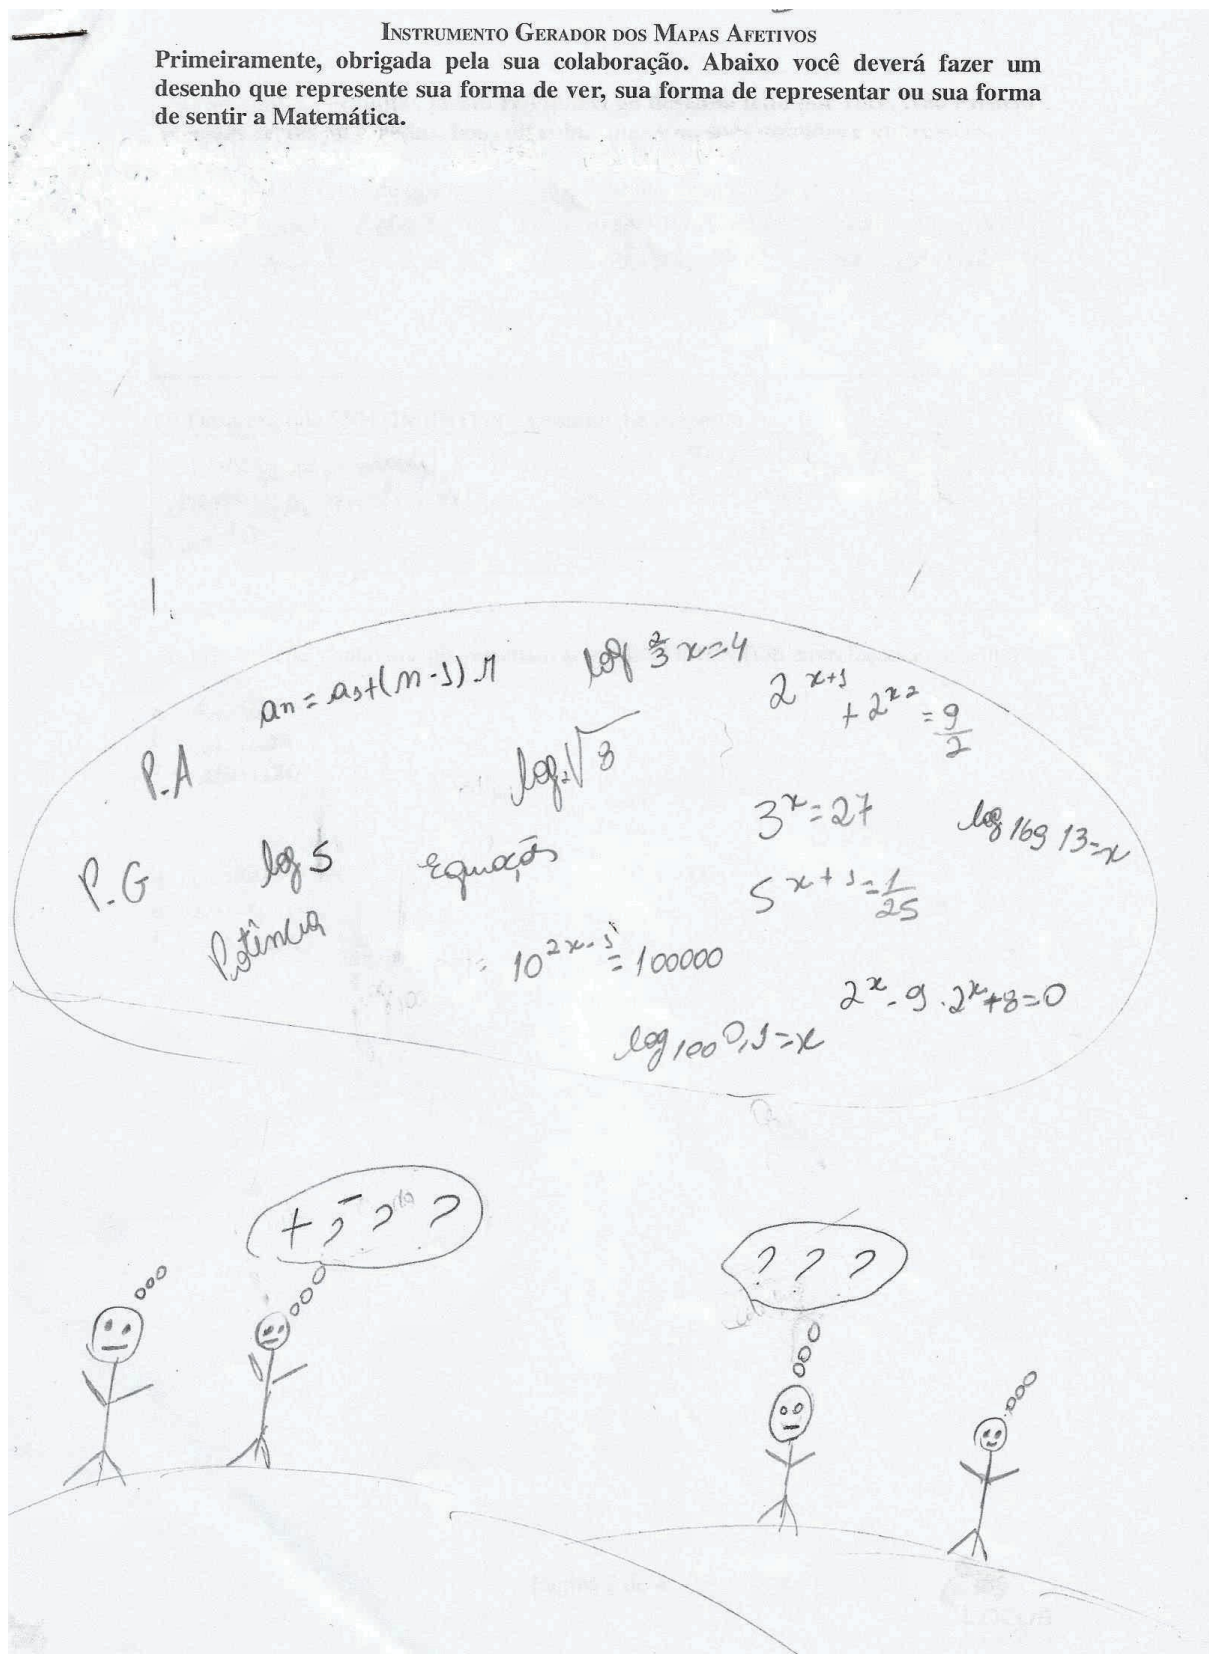 INSTRUMENTO GERADOR DOS MAPAS AFETIVOS
Primeiramente, obrigada pela sua colaboração. Abaixo você deverá fazer um
desenho que represente sua forma de ver, sua forma de representar ou sua forma
de sentir a Matemática.
an = a1+(n-1).r
log 2/3 x=4
2^x+1 + 2^x-2 = 9/2
P.A
log2 √8
3^x=27
log 169 13=x
P.G
log 5
equações
5^x+1=1/25
Potência
= 10^2x-1 = 100000
2^x - 9 . 2^x+8=0
log100 0,1=x
+ - ? ? ?
? ? ?